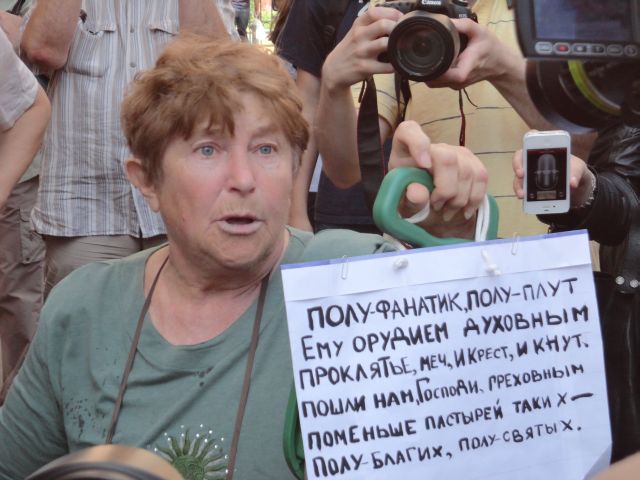 Canon
ПОЛУ-ФАНАТИК, ПОЛУ-ПЛУТ
ЕМУ ОРУДИЕМ ДУХОВНЫМ
ПРОКЛЯТЬЕ, МЕЧ, И КРЕСТ, И КНУТ.
ПОШЛИ НАМ, ГОСПОДИ, ГРЕХОВНЫМ
ПОМЕНЬШЕ ПАСТЫРЕЙ ТАКИХ—
ПОЛУ-БЛАГИХ, ПОЛУ-СВЯТЫХ.